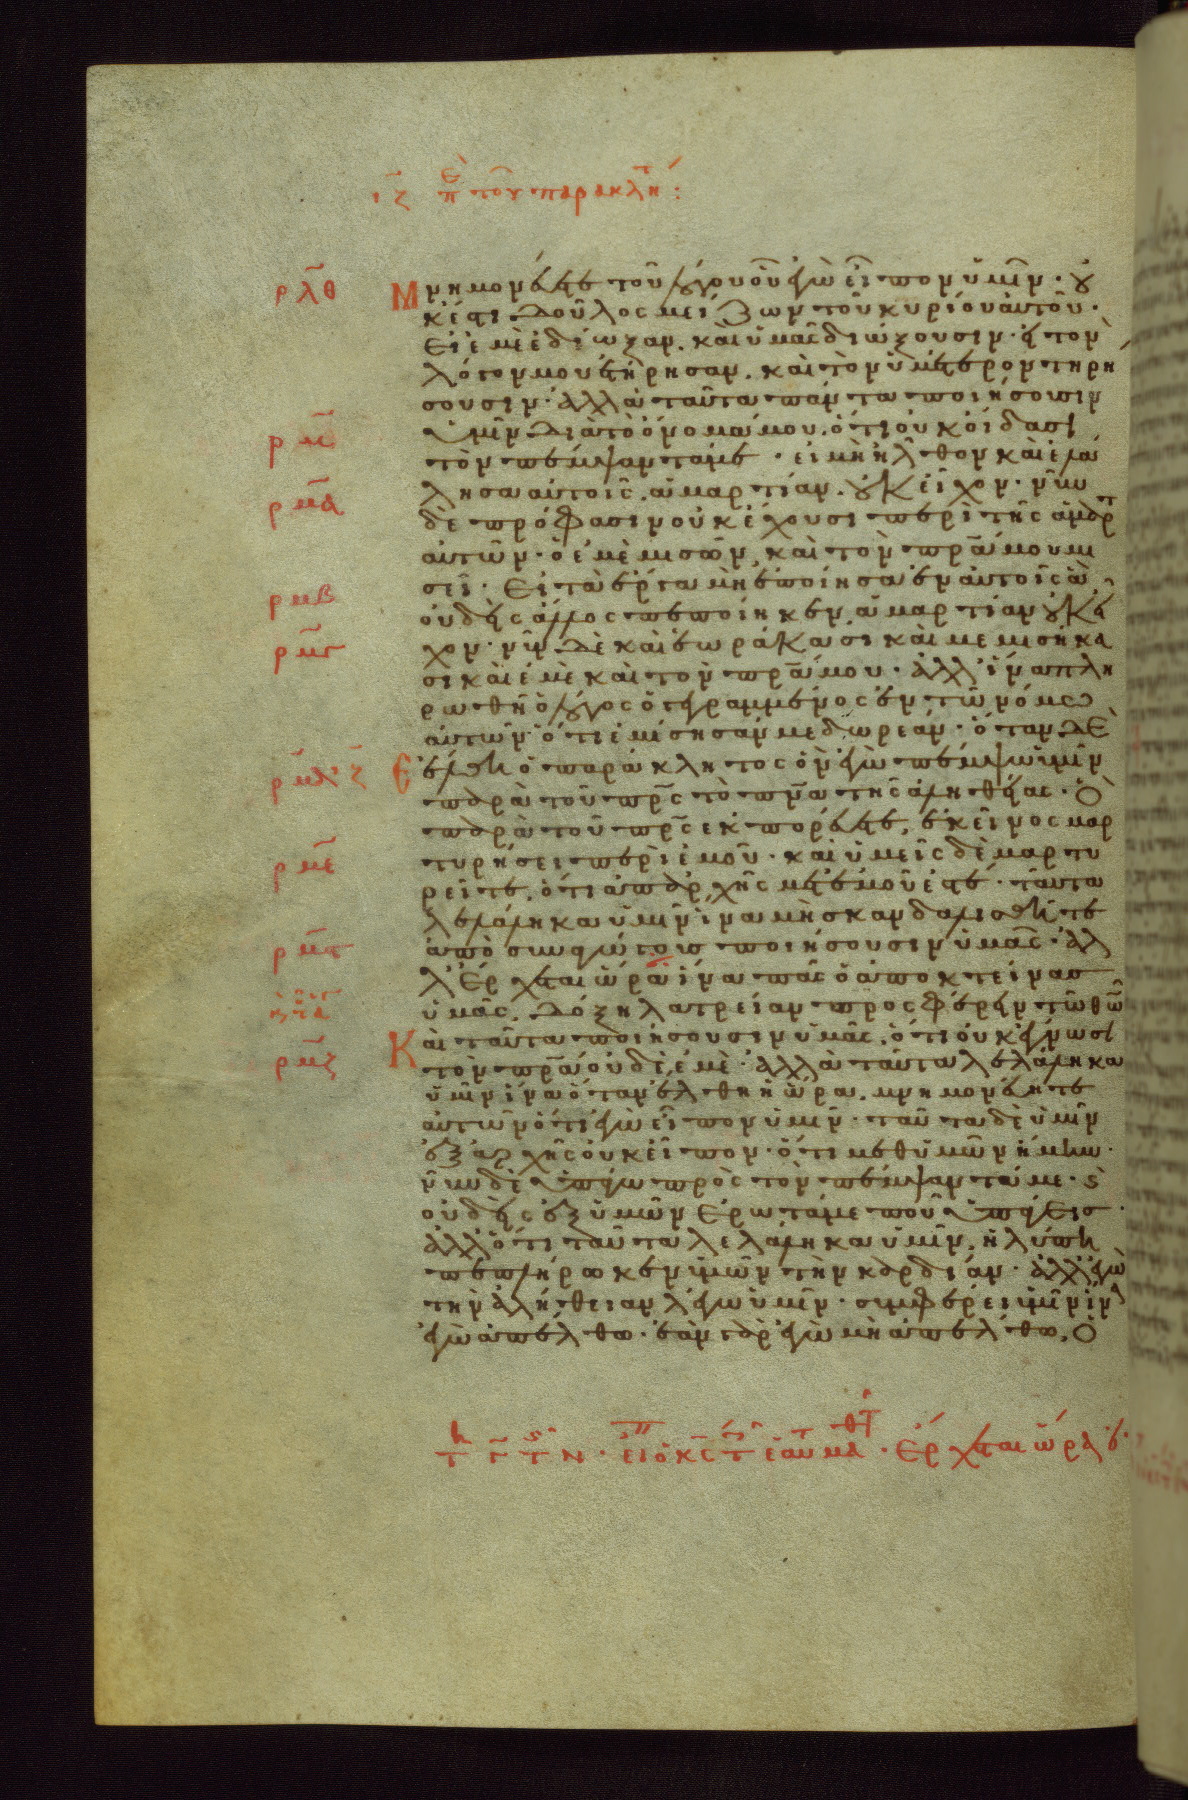 ιζ περὶ τοῦ παρακλή:
ρλθ Μνημονεύετε τοῦ λόγου οὗ ἐγὼ εἶπον ὑμῖν· οὐ
κ ἔστι δοῦλος μείζων τοῦ κυρίου αὐτοῦ·
Εἰ ἐμὲ ἐδίωξαν, καὶ ὑμᾶς διώξουσιν· εἰ τὸν
λόγον μου ἐτήρησαν, καὶ τὸν ὑμέτερον τηρή
σουσιν· ἀλλὰ ταῦτα πάντα ποιήσουσιν
ρμ ὑμῖν διὰ τὸ ὄνομά μου, ὅτι οὐκ οἴδασι
τὸν πέμψαντά με· εἰ μὴ ἦλθον καὶ ἐλά
ρμα λησα αὐτοῖς, ἁμαρτίαν οὐκ εἶχον· νῦν
δὲ πρόφασιν οὐκ ἔχουσι περὶ τῆς ἁμαρτ
αὐτῶν· ὁ ἐμὲ μισῶν, καὶ τὸν πρα μου μι
σεῖ· Εἰ τὰ ἔργα μὴ ἐποίησα ἐν αὐτοῖς ἃ
ρμβ οὐδεὶς ἄλλος πεποίηκεν, ἁμαρτίαν οὐκ εἶ
ρμγ χον· νῦν δὲ καὶ ἑωράκασι καὶ μεμισήκα
σι καὶ ἐμὲ καὶ τὸν πρα μου· ἀλλ' ἵνα πλη
ρωθῆ ὁ λόγος ὁ γεγραμμένος ἐν τῶ νόμω
αὐτῶν· ὅτι ἐμίσησάν με δωρεάν· ὅταν δὲ
ρμδ ιζ Ἔλθη ὁ παράκλητος ὃν ἐγὼ πέμψω ὑμῖν
παρὰ τοῦ πρς τὸ πνα τῆς ἀληθείας· Ὃ
παρὰ τοῦ πρς ἐκπορεύεται, ἐκεῖνος μαρ
ρμε τυρήσει περὶ ἐμοῦ· καὶ ὑμεῖς δὲ μαρτυ
ρεῖτε, ὅτι ἀπαρχῆς μετ' ἐμοῦ ἐστε· ταῦτα
λελάληκα ὑμῖν ἵνα μὴ σκανδαλισθῆτε
ρμϛ ἀποσυναγώγους ποιήσουσιν ὑμᾶς· ἀλ
λ' Ἔρχεται ὥρα ἵνα πᾶς ὁ ἀποκτείνας
ὑμᾶς, δόξη λατρείαν προσφέρειν τῶ θῶ
Καὶ ταῦτα ποιήσουσιν ὑμᾶς, ὅτι οὐκ ἔγνωσ
ρμζ τὸν πρα οὐδὲ ἐμὲ· ἀλλὰ ταῦτα λελάληκα
ὑμῖν ἵνα ὅταν ἔλθη ἡ ὥρα, μνημονεύητε
αὐτῶν ὅτι ἐγὼ εἶπον ὑμῖν· ταῦτα δὲ ὑμῖν
ἐξ ἀρχῆς οὐκ εἶπον· ὅτι μεθ' ὑμῶν ἤμην·
νῦν δὲ ὑπάγω πρὸς τὸν πέμψαντά με· καὶ
οὐδεὶς ἐξ ὑμῶν Ἐρωτᾶ με ποῦ ὑπάγεις·
ἀλλ' ὅτι ταῦτα λελάληκα ὑμῖν, ἡ λύπη
πεπλήρωκεν ὑμῶν τὴν καρδίαν· ἀλλ' ἐγὼ
τὴν ἀλήθειαν λέγω ὑμῖν· συμφέρει ὑμῖν ἵν
ἐγὼ ἀπέλθω· ἐὰν γὰρ ἐγὼ μὴ ἀπέλθω, Ὁ
ἔρχεται ὥρα